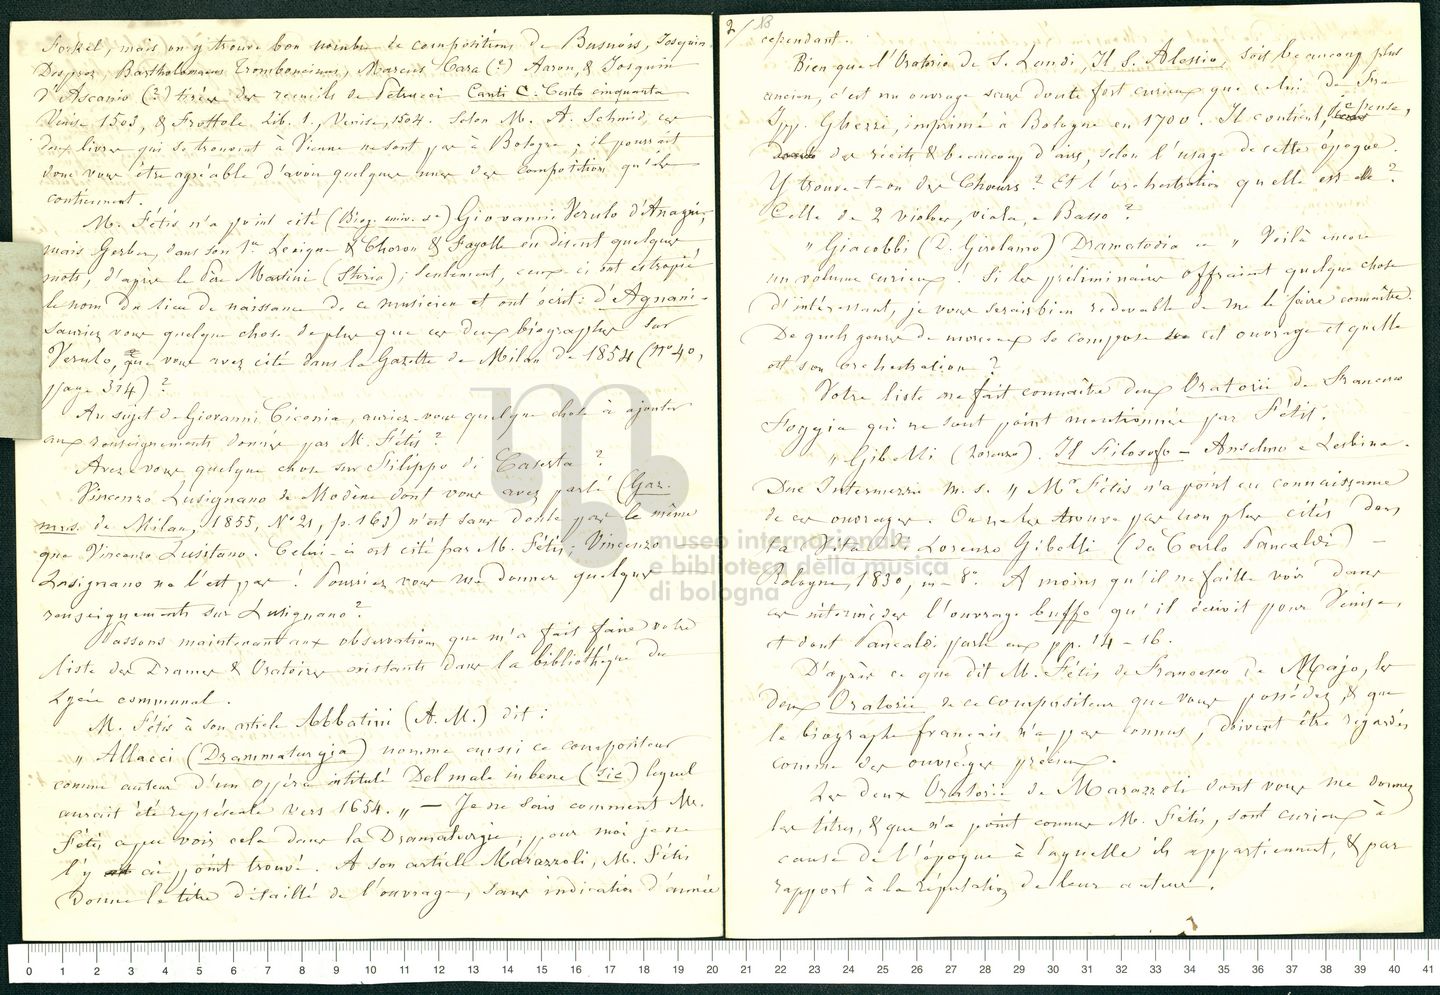 Forkel, mais on y trouve bon nombre de compositions de Busnois, Josquin
Desprez, Bartholomaeus Tromboncinus, Marcus Cara (?) Aaron, & Josquin
D'Ascanio (?) tirées des recueils de Petrucci Canti C. Cento cinquanta
Venise 1503, & Frottole Lib. 1., Venise, 1504. Selon M. A. Schmid, ces
deux livres qui se trouvent à Vienne ne sont pas à Bologne; il pourrait
donc vous être agréable d'avoir quelques unes des compositions qu'ils
contiennent.
M. Fétis n'a point cité (Biog. univ.) Giovanni Verulo d'Anagni,
mais Gerber, dans son 1er Lexique & Choron & Fayolle en disent quelques
mots, d'après le Père Martini (Storia); seulement, ceux ci ont estropié
le nom du lieu de naissance de ce musicien et ont écrit: d'Agnani-
Sauriez vous quelque chose de plus que ces deux biographes sur
Verulo, que vous avez cité dans la Gazette de Milan de 1854 (No 40,
page 314)?
Au sujet de Giovanni Ciconia, auriez-vous quelque chose à ajouter
aux renseignements donnés par M. Fétis?
Avez-vous quelque chose sur Filippo di Caserta?
Vincenzo Lusignano de Modène dont vous avez parlé (Gaz.
mus. de Milan, 1855, No 21, p. 163) n'est sans doute pas le même
que Vincenzo Lusitano. Celui-ci est cité par M. Fétis; Vincenzo
Lusignano ne l'est pas! Pourriez vous me donner quelques
renseignements sur Lusignano?
Passons maintenant aux observations que m'a fait faire votre
liste des Drames & Oratoires existants dans la bibliothèque du
Lycée communal.
M. Fétis à son article Abbatini (A. M.) dit:
" Allacci (Drammaturgia) nomme aussi ce compositeur
comme auteur d'un opéra intitulé Del male in bene (sic) lequel
aurait été représenté vers 1654. " — Je ne sais comment M.
Fétis a pu voir cela dans la Dramaturgie; pour moi je ne
l'y ai point trouvé. A son article Marazzoli, M. Fétis
donne le titre détaillé de l'ouvrage, sans indication d'année
2/
cependant.
Bien que l'Oratorio de S. Landi, Il S. Alessio, soit beaucoup plus
ancien, c'est un ouvrage sans doute fort curieux que celui de Fra
Ipp. Ghezzi, imprimé à Bologne en 1700. Il contient, je pense,
des récits & beaucoup d'airs, selon l'usage de cette époque.
Y trouve-t-on des Chœurs? Et l'orchestration quelle est-elle?
Celle de 2 violons, viola, e Basso?
" Giacobbi (D. Girolamo) Dramatodia " Voilà encore
un volume curieux! Si les préliminaires offraient quelque chose
d'intéressant, je vous serais bien redevable de me le faire connaître.
De quels genres de morceaux se compose cet ouvrage et quelle
est son orchestration?
Votre liste me fait connaître deux Oratorii de Francesco
Foggia qui ne sont point mentionnés par Fétis.
" Gibelli (Lorenzo). Il Filosofo – Anselmo e Lesbina.
Due Intermezzi m. s. " Mr Fétis n'a point eu connaissance
de ces ouvrages. On ne les trouve pas non plus cités dans
La Vita di Lorenzo Gibelli (da Carlo Pancaldi) –
Bologne, 1830, in-8o. A moins qu'il ne faille voir dans
ces intermèdes l'ouvrage buffo qu'il écrivit pour Venise,
et dont Pancaldi parle aux pp. 14–16.
D'après ce que dit M. Fétis de Francesco de Majo, les
deux Oratorii de ce compositeur que vous possédez, & que
le biographe français n'a pas connus, doivent être regardés
comme des ouvrages précieux.
Les deux Oratorii de Marazzoli dont vous me donnez
les titres, & que n'a point connus M. Fétis, sont curieux à
cause de l'époque à laquelle ils appartiennent, & par
rapport à la réputation de leur auteur.
museo internazionale
e biblioteca della musica
di bologna
0 1 2 3 4 5 6 7 8 9 10 11 12 13 14 15 16 17 18 19 20 21 22 23 24 25 26 27 28 29 30 31 32 33 34 35 36 37 38 39 40 41